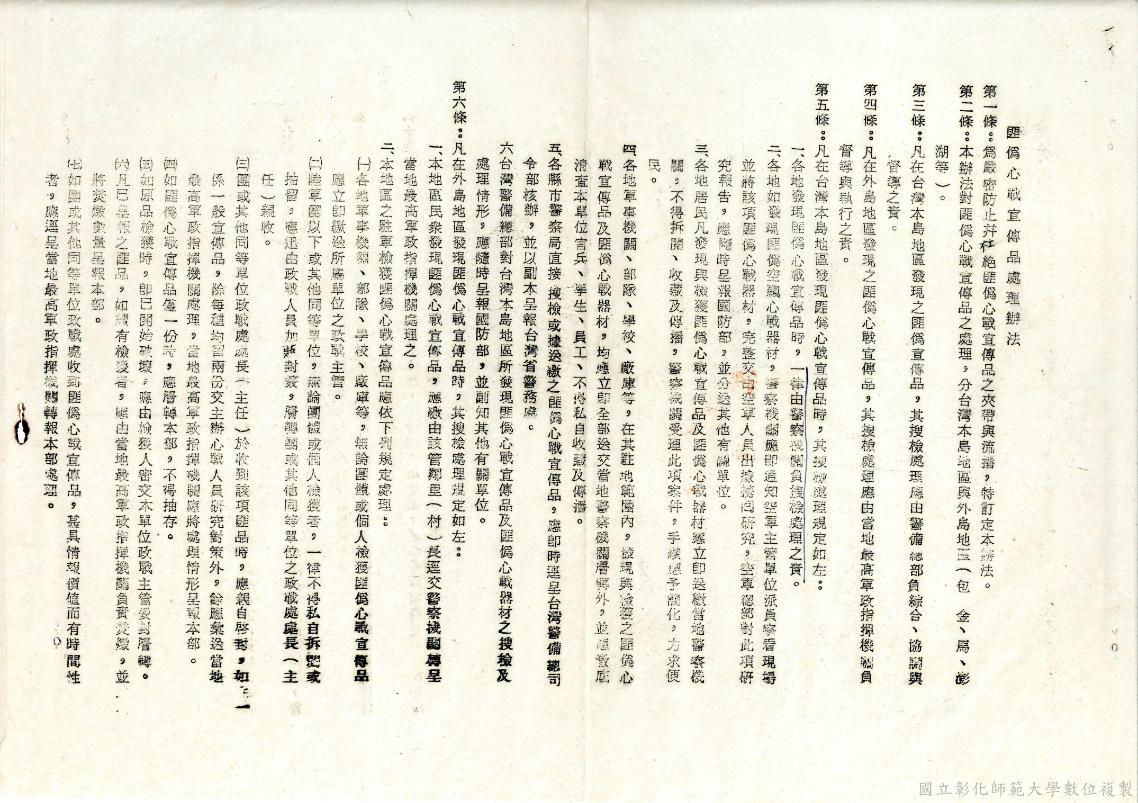 匪偽心戰宣傳品處理辦法
第一條：為嚴密防止并杜絕匪偽心戰宣傳品之夾帶與流播，特訂定本辦法。
第二條：本辦法對匪偽心戰宣傳品之處理，分台灣本島地區與外島地區（包 金、馬、澎
湖等）。
第三條：凡在台灣本島地區發現之匪偽宣傳品，其搜檢處理應由警備總部負綜合、協調與
督導之責。
第四條：凡在外島地區發現之匪偽心戰宣傳品，其搜檢處理應由當地最高軍政指揮機構負
督導與執行之責。
第五條：凡在台灣本島地區發現匪偽心戰宣傳品時，其搜檢處理規定如左：
一、各地發現匪偽心戰宣傳品時，一律由警察機關負搜檢處理之責。
二、各地如發現匪偽空飄心戰器材，警察機關應即通知空軍主管單位派員察看現場
並將該項匪偽心戰器材，完整交由空軍人員出據攜回研究，空軍總部對此項研
究報告，應隨時呈報國防部，並分送其他有關單位。
三、各地居民凡發現與檢獲匪偽心戰宣傳品及匪偽心戰器材應立即送繳當地警察機
關，不得拆閱、收藏及傳播，警察機關受理此項案件，手續應予簡化，力求便
民。
四、各地軍事機關、部隊、學校、廠庫等，在其駐地範圍內，發現與檢獲之匪偽心
戰宣傳品及匪偽心戰器材，均應立即全部送交當地警察機關層轉外，並應徹底
清查本單位官兵、學生、員工、不得私自收藏及傳播。
五、各縣市警察局直接、搜檢或據送繳之匪偽心戰宣傳品，應即時逕呈台灣警備總司
令部核辦，並以副本呈報台灣省警務處。
六台灣警備總部對台灣本島地區所發現匪偽心戰宣傳品及匪偽心戰器材之搜檢及
處理情形，應隨時呈報國防部，並副知其他有關單位。
第六條：凡在外島地區發現匪偽心戰宣傳品時，其搜檢處理規定如左：
一、本地區民眾發現匪偽心戰宣傳品，應繳由該管鄉里（村）長逕交警察機關轉呈
當地最高軍政指揮機關處理之。
二、本地區之駐軍檢獲匪偽心戰宣傳品應依下列規定處理：
㈠各地軍事機關、部隊、學校、廠庫等，無論團體或個人檢獲匪偽心戰宣傳品
應立即繳送所屬單位之政戰主管。
㈡陸軍團以下或其他同等單位，無論團體或個人檢獲者，一律不得私自拆閱或
抽留，應迅由政戰人員加以封簽，層轉師或其他同等單位之政戰處處長（主
任）親收。
㈢師或其他同等單位政戰處處長（主任）於收到該項匪偽品時，應親自啓封，如
係一般宣傳品，除每種均留兩份交主辦心戰人員研究對策外，餘應彙送當地
最高軍政指揮機關處理，當地最高軍政指揮機關應將處理情形呈報本部。
㈣如匪偽心戰宣傳品僅一份時，應層轉本部，不得抽存。
㈤如原品檢獲時，即已開始破壞，應由檢獲人密交本單位政戰主管妥封層轉。
㈥凡已呈報之匪品，如續有檢獲者，應由當地最高軍政指揮機關負責焚燬，並
將焚燬數量呈報本部。
㈦如團或其他同等單位政戰處收到匪偽心戰宣傳品，其具情報價值而有時間性
者，應逕呈當地最高軍政指揮機關轉報本部處理。
國立彰化師範大學數位複製